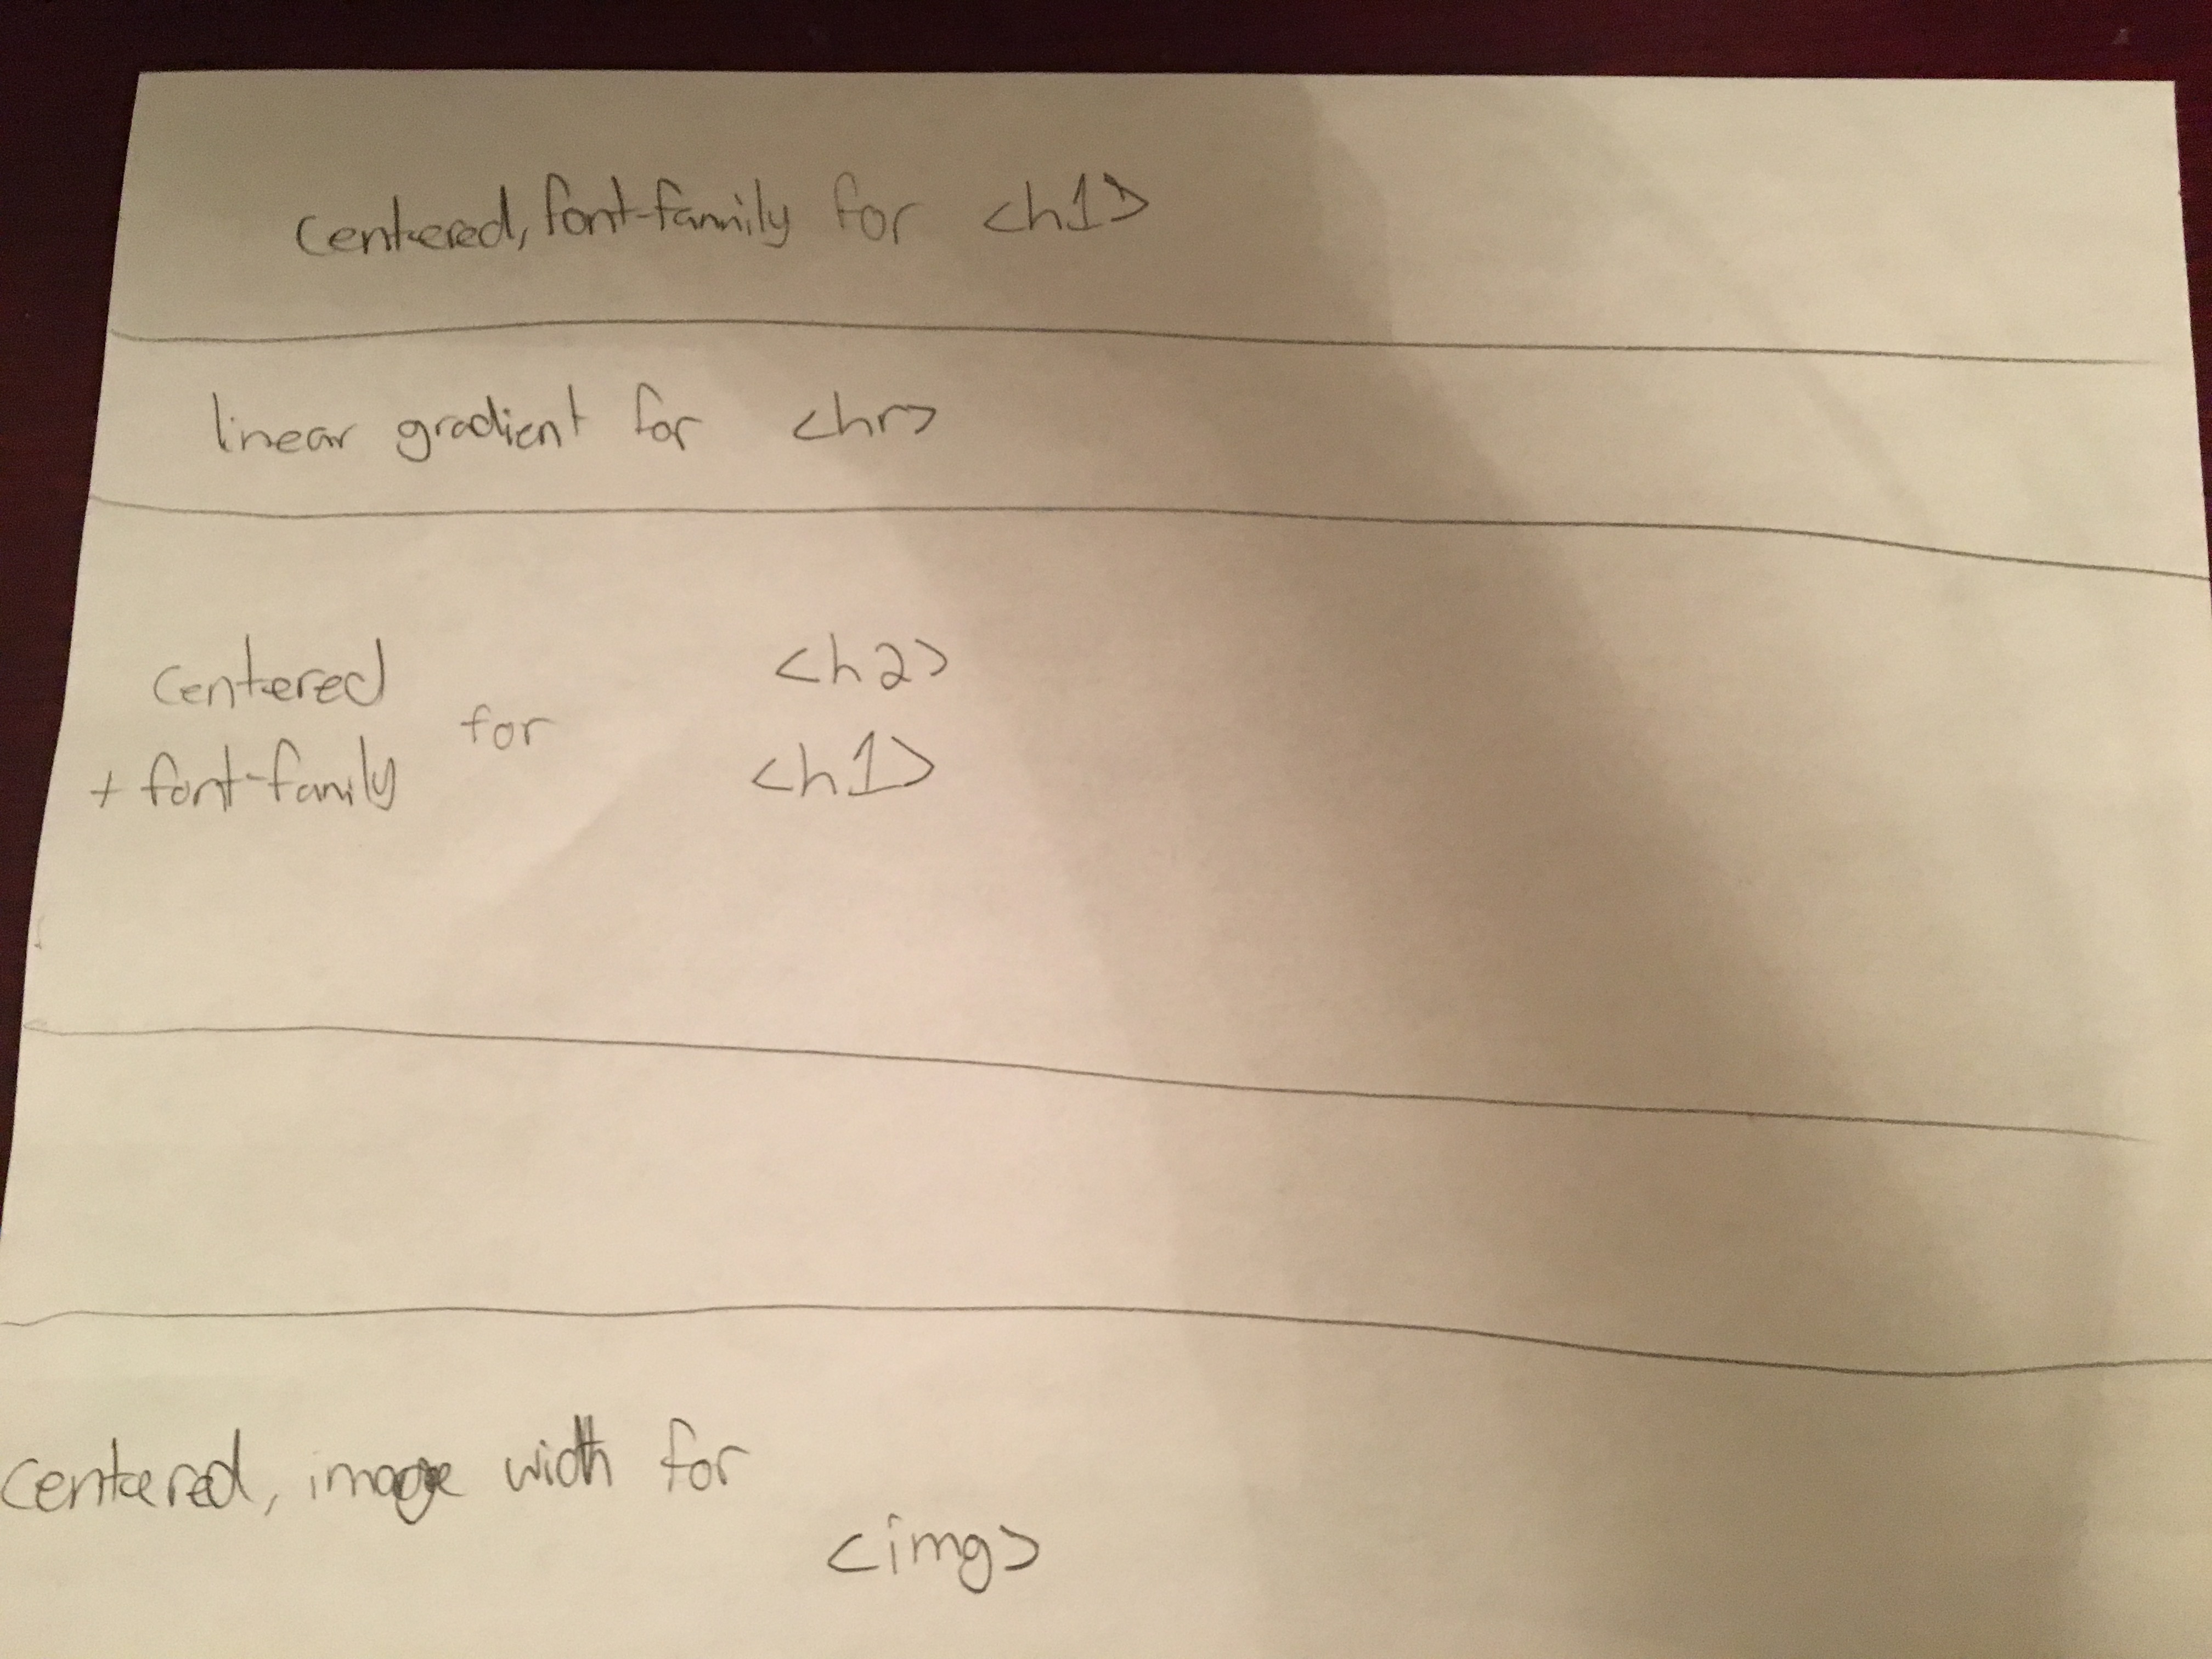 Centered, font-family for <h1>
linear gradient for <hr>
Centered <h2>
for
+ font-family <h1>
Centered, image width for
<img>